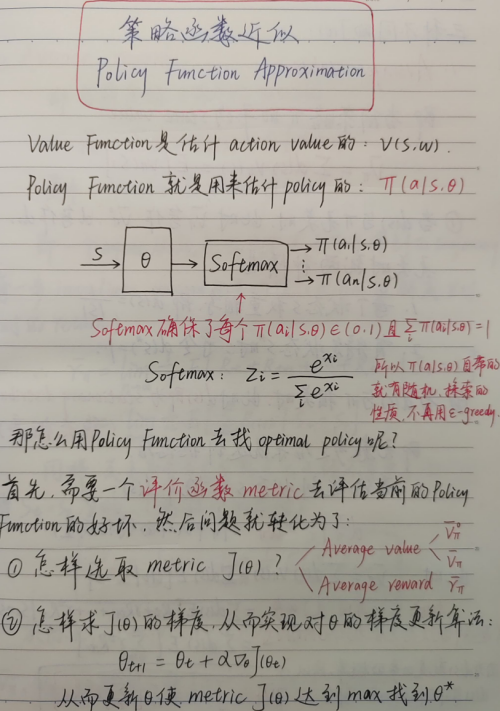 策略函数近似
Policy Function Approximation
Value Function是估计action value的: V(s,w).
Policy Function 就是用来估计policy的: π(a|s,θ)
S θ Softmax π(a₁|s,θ)
⋮
π(aₙ|s,θ)
Softmax确保了每个π(aᵢ|s,θ)∈(0.1)且∑ᵢπ(aᵢ|s,θ)=1
Softmax: Zᵢ = e^{xᵢ} / ∑ᵢ e^{xᵢ}
所以π(a|s,θ)自带的
就有随机、探索的
性质,不再用ε-greedy.
那怎么用Policy Function去找optimal policy呢?
首先,需要一个评价函数metric去评估当前的Policy
Function的好坏,然后问题就转化为了:
① 怎样选取metric J(θ)?
Average value V̄π⁰
V̄π
Average reward r̄π
② 怎样求J(θ)的梯度,从而实现对θ的梯度更新算法:
θₜ₊₁ = θₜ + α∇θJ(θₜ)
从而更新θ使metric J(θ)达到max找到θ*